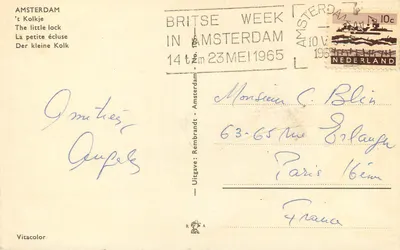 AMSTERDAM
't Kolkje
The little lock
La petite écluse
Der kleine Kolk
BRITSE WEEK
IN AMSTERDAM
14 t/m 23 MEI 1965
AMSTERDAM
10 V
10c
NEDERLAND
Amitiés
Angela
Uitgave: Rembrandt - Amsterdam - No.
Monsieur C. Blin
63-65 rue Erlanger
Paris 16ème
France
Vitacolor